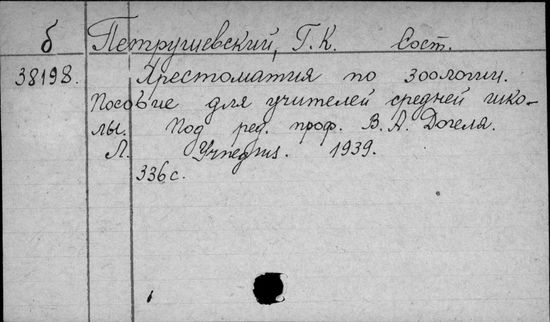 б Петрушевский, Г. К. Сост.
38198. Хрестоматия по зоологии.
Пособие для учителей средней шко-
лы. Под ред. проф. В. А. Догеля.
Л. Учпедгиз. 1939.
336 с.